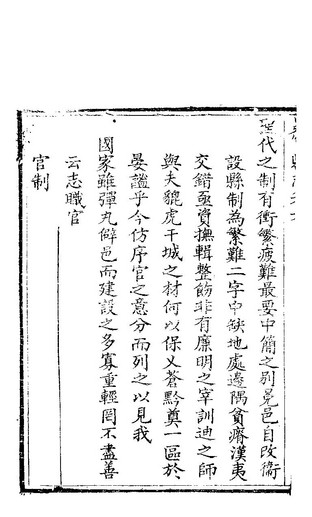 代之制有衝繁疲難最要中簡之别晃邑自改衛
設縣制為繁難二字中缺地處邊隅貧瘠漢夷
交錯亟資撫輯整飭非有廉明之宰訓迪之師
與夫貔虎干城之材何以保乂蒼黔奠一區於
晏謐乎今仿序官之意分而列之以見我
國家雖彈丸僻邑而建設之多寡重輕罔不盡善
云志職官
官制